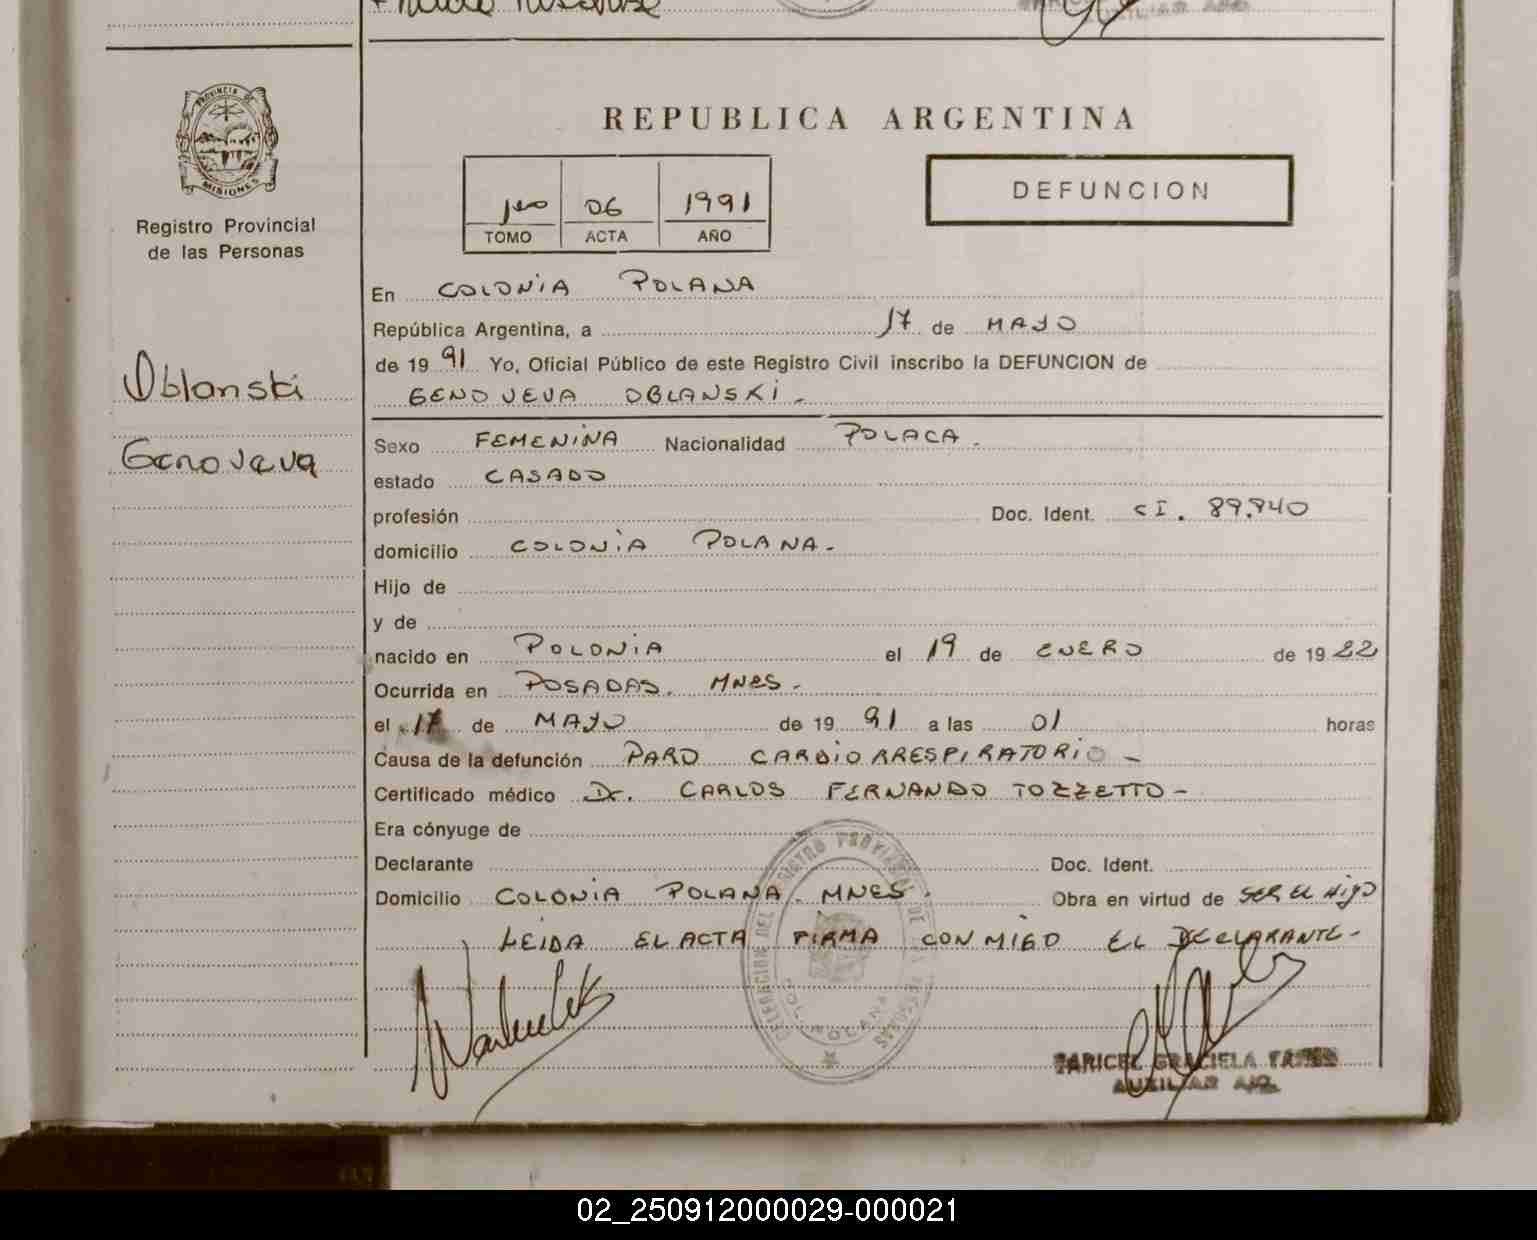 PROVINCIA DE
MISIONES
Registro Provincial
de las Personas
Oblanski
Genoveva
REPUBLICA ARGENTINA
DEFUNCION
06 1991
TOMO ACTA AÑO
En COLONIA POLANA
República Argentina, a 17 de MAYO
de 19 91 Yo, Oficial Público de este Registro Civil inscribo la DEFUNCION de
GENOVEVA OBLANSKI.
Sexo FEMENINA Nacionalidad POLACA.
estado CASADO
profesión Doc. Ident. CI. 89.940
domicilio COLONIA POLANA.
Hijo de
y de
nacido en POLONIA el 19 de ENERO de 19 22
Ocurrida en POSADAS. MNES.
el 17 de MAYO de 19 91 a las 01 horas
Causa de la defunción PARO CARDIORRESPIRATORIO -
Certificado médico Dr. CARLOS FERNANDO TOZZETTO -
Era cónyuge de
Declarante Doc. Ident.
Domicilio COLONIA POLANA. MNES. Obra en virtud de SER EL HIJO
LEIDA EL ACTA FIRMA CONMIGO EL DECLARANTE-
GRACIELA
AUXILIAR
02_250912000029-000021